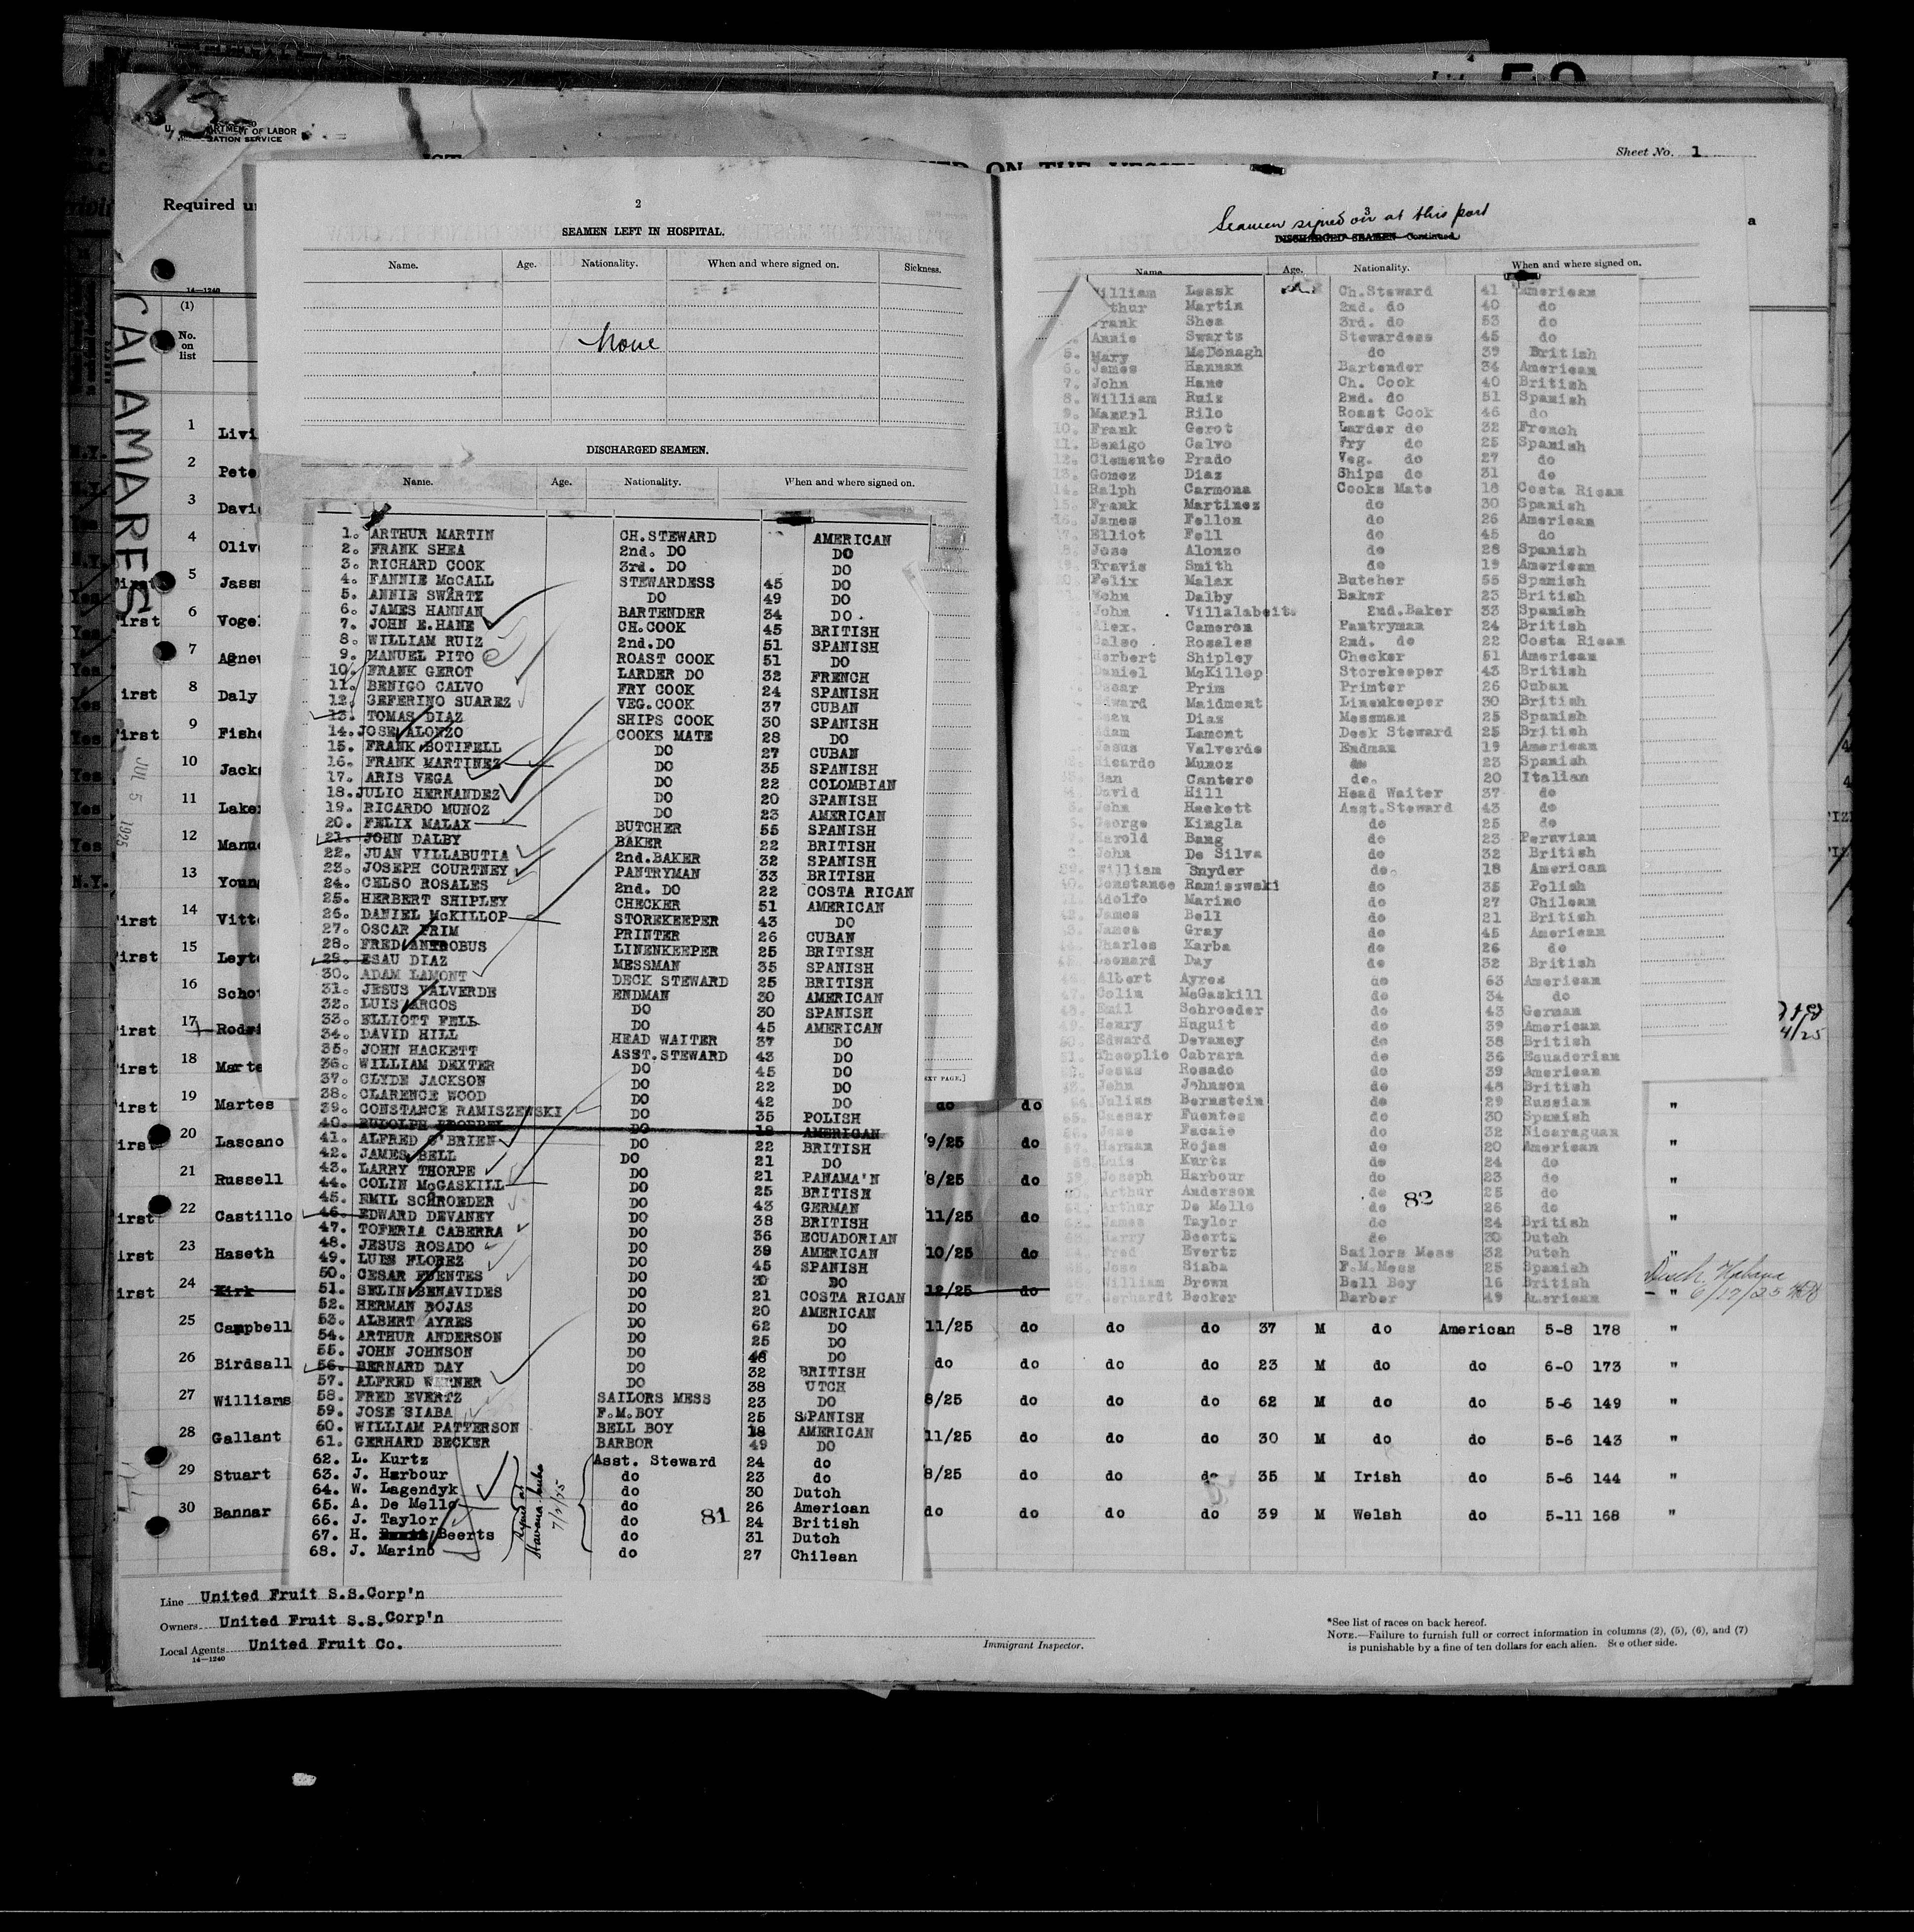 DEPARTMENT OF LABOR
Sheet No. 1
ON THE
Required
a
14—1240
(1)
No.
on
list
CALAMARES
JUL 5 1925
2
SEAMEN LEFT IN HOSPITAL.
Name. Age. Nationality. When and where signed on. Sickness.
None
DISCHARGED SEAMEN.
Name. Age. Nationality. When and where signed on.
1. ARTHUR MARTIN CH.STEWARD AMERICAN
2. FRANK SHEA 2nd. DO DO
3. RICHARD COOK 3rd. DO DO
4. FANNIE McCALL STEWARDESS 45 DO
5. ANNIE SWARTZ DO 49 DO
6. JAMES HANNAN BARTENDER 34 DO.
7. JOHN E.HANE CH.COOK 45 BRITISH
8. WILLIAM RUIZ 2nd.DO 51 SPANISH
9. MANUEL PITO ROAST COOK 51 DO
10. FRANK GEROT LARDER DO 32 FRENCH
11. BENIGO CALVO FRY COOK 24 SPANISH
12. SEFERINO SUAREZ VEG.COOK 37 CUBAN
13. TOMAS DIAZ SHIPS COOK 30 SPANISH
14. JOSE ALONZO COOKS MATE 28 DO
15. FRANK BOTIFELL DO 27 CUBAN
16. FRANK MARTINEZ DO 35 SPANISH
17. ARIS VEGA DO 22 COLOMBIAN
18. JULIO HERNANDEZ DO 20 SPANISH
19. RICARDO MUNOZ DO 23 AMERICAN
20. FELIX MALAX BUTCHER 55 SPANISH
21. JOHN DALBY BAKER 22 BRITISH
22. JUAN VILLABUTIA 2nd.BAKER 32 SPANISH
23. JOSEPH COURTNEY PANTRYMAN 33 BRITISH
24. CELSO ROSALES 2nd. DO 22 COSTA RICAN
25. HERBERT SHIPLEY CHECKER 51 AMERICAN
26. DANIEL McKILLOP STOREKEEPER 43 DO
27. OSCAR PRIM PRINTER 26 CUBAN
28. FRED ANTROBUS LINENKEEPER 25 BRITISH
29. ESAU DIAZ MESSMAN 35 SPANISH
30. ADAM LAMONT DECK STEWARD 25 BRITISH
31. JESUS VALVERDE ENDMAN 30 AMERICAN
32. LUIS ARGOS DO 30 SPANISH
33. ELLIOTT FELL DO 45 AMERICAN
34. DAVID HILL HEAD WAITER 37 DO
35. JOHN HACKETT ASST.STEWARD 43 DO
36. WILLIAM DEXTER DO 45 DO
37. CLYDE JACKSON DO 22 DO
38. CLARENCE WOOD DO 42 DO
39. CONSTANCE RAMISZEWSKI DO 35 POLISH
40. RUDOLPH DO 18 AMERICAN
41. ALFRED O'BRIEN DO 22 BRITISH
42. JAMES BELL DO 21 DO
43. LARRY THORPE DO 21 PANAMA'N
44. COLIN McGASKILL DO 25 BRITISH
45. EMIL SCHROEDER DO 43 GERMAN
46. EDWARD DEVANEY DO 38 BRITISH
47. TOFERIA CABERRA DO 36 ECUADORIAN
48. JESUS ROSADO DO 39 AMERICAN
49. LUIS FLOREZ DO 45 SPANISH
50. CESAR FUENTES DO 30 DO
51. SELIN BENAVIDES DO 21 COSTA RICAN
52. HERMAN ROJAS DO 20 AMERICAN
53. ALBERT AYRES DO 62 DO
54. ARTHUR ANDERSON DO 25 DO
55. JOHN JOHNSON DO 48 DO
56. BERNARD DAY DO 32 BRITISH
57. ALFRED WERNER DO 38 UTCH
58. FRED EVERTZ SAILORS MESS 23 DO
59. JOSE SIABA F.M.BOY 25 SPANISH
60. WILLIAM PATTERSON BELL BOY 18 AMERICAN
61. GERHARD BECKER BARBOR 49 DO
62. L. Kurtz Asst. Steward 24 do
63. J. Harbour do 23 do
64. W. Lagendyk do 30 Dutch
65. A. De Mello do 26 American
66. J. Taylor do 24 British
67. H. Beerts do 31 Dutch
68. J. Marino do 27 Chilean
Signed at Havana Cuba 7/2/25
81
3
Seamen signed on at this port
DISCHARGED SEAMEN—Continued
Name Age. Nationality. When and where signed on.
William Leask Ch.Steward 41 American
Arthur Martin 2nd. do 40 do
Frank Shea 3rd. do 53 do
Annie Swartz Stewardess 45 do
5. Mary McDonagh do 39 British
6. James Hannan Bartender 34 American
7. John Hane Ch. Cook 40 British
8. William Ruiz 2nd. do 51 Spanish
9. Manuel Rilo Roast Cook 46 do
10. Frank Gerot Larder do 32 French
11. Benigo Calvo Fry do 25 Spanish
12. Clemente Prado Veg. do 27 do
13. Gomez Diaz Ships do 31 do
14. Ralph Carmona Cooks Mate 18 Costa Rican
15. Frank Martinez do 30 Spanish
16. James Fellon do 26 American
17. Elliot Fell do 45 do
18. Jose Alonzo do 28 Spanish
19. Travis Smith do 19 American
20. Felix Malax Butcher 55 Spanish
John Dalby Baker 23 British
John Villalabeita 2nd.Baker 33 Spanish
Alex. Cameron Pantryman 24 British
Celso Rosales 2nd. do 22 Costa Rican
Herbert Shipley Checker 51 American
Daniel McKillop Storekeeper 43 British
Oscar Prim Printer 26 Cuban
Edward Maidment Linenkeeper 30 British
Esau Diaz Messman 25 Spanish
Adam Lamont Deck Steward 25 British
Jesus Valverde Endman 19 American
Ricardo Munoz do 23 Spanish
San Cantero do. 20 Italian
David Hill Head Waiter 37 do
John Hackett Asst.Steward 43 do
George Kingla do 25 do
Harold Bang do 23 Peruvian
John De Silva do 32 British
39. William Snyder do. 18 American
40. Constance Ramiszwski do 35 Polish
Adolfo Marino do 27 Chilean
42. James Bell do 21 British
43. James Gray do 45 American
44. Charles Karba do 26 do
45. Leonard Day do 32 British
46. Albert Ayres do 63 American
47. Colin McGaskill do 34 do
48. Emil Schroeder do 43 German
49. Henry Huguit do 39 American
50. Edward Devaney do 38 British
51. Theoplio Cabrara do 36 Ecuadorian
52. Jesus Rosado do 39 American
53. John Johnson do 48 British
54. Julius Bernstein do 29 Russian
55. Caesar Fuentes do 30 Spanish
56. Jose Facaie do 32 Nicaraguan
57. Herman Rojas do 20 American
58. Luis Kurtz do 24 do
59. Joseph Harbour do 23 do
60. Arthur Anderson do 25 do
61. Arthur De Mello do 26 do
62. James Taylor do 24 British
Harry Beerts do 30 Dutch
Fred Evertz Sailors Mess 32 Dutch
Jose Siaba F.M.Mess 25 Spanish
William Brown Bell Boy 16 British
67. Gerhardt Becker Barber 49 American
82
1 Livi
2 Pete
3 Davi
4 Olive
5 Jass
6 Vogel
7 Agnew
8 Daly
9 Fishe
10 Jacks
11 Laker
12 Manu
13 Young
14 Vitto
15 Leyte
16 Schot
17 Rodri
18 Marte
19 Martes do do "
20 Lascano 9/25 do "
21 Russell 8/25 do "
22 Castillo 11/25 do "
23 Haseth 10/25 do "
24 Kirk 12/25 do " Habana 6/17/25
25 Campbell 11/25 do do do 37 M do American 5-8 178 "
26 Birdsall do do do do 23 M do do 6-0 173 "
27 Williams 8/25 do do do 62 M do do 5-6 149 "
28 Gallant 11/25 do do do 30 M do do 5-6 143 "
29 Stuart 8/25 do do do 35 M Irish do 5-6 144 "
30 Bannar do do do do 39 M Welsh do 5-11 168 "
Line United Fruit S.S.Corp'n
Owners United Fruit S.S.Corp'n
Local Agents United Fruit Co.
14—1240
Immigrant Inspector.
*See list of races on back hereof.
NOTE.—Failure to furnish full or correct information in columns (2), (5), (6), and (7)
is punishable by a fine of ten dollars for each alien. See other side.